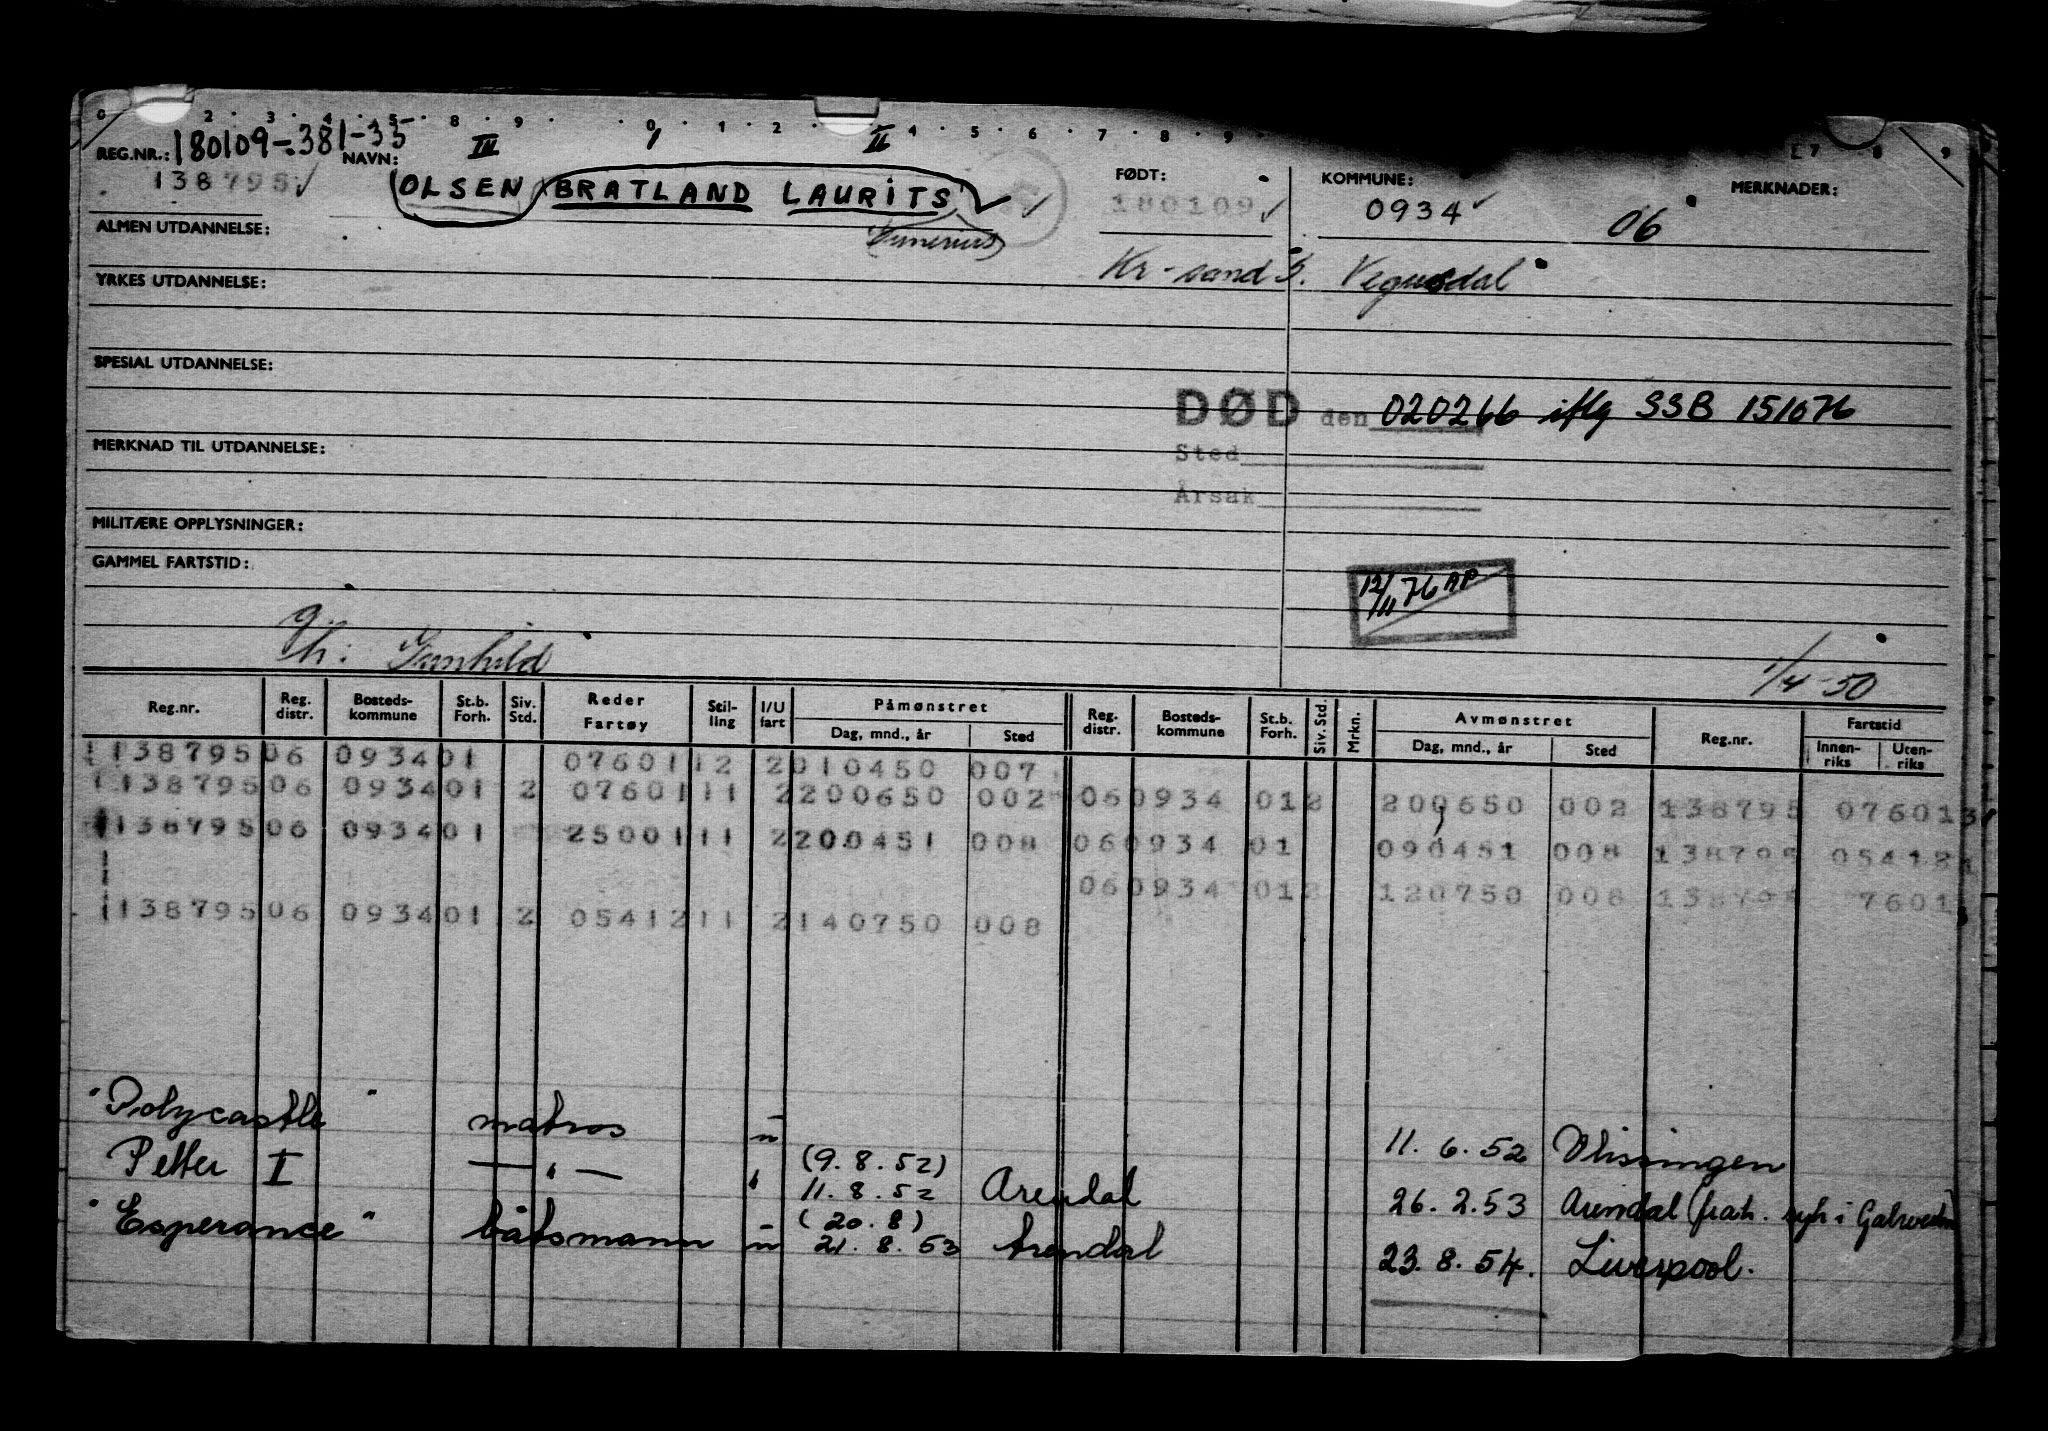 0 2 · 3 · 4 · 5 · 8 · 9 · 0 · 1 · 2 · 4 · 5 · 6 · 7 · 8 · 9 7 8 9
180109-381-35 III I II
REG.NR.: NAVN: FØDT: KOMMUNE: MERKNADER:
138795 ✓ OLSEN BRATLAND LAURITS ✓ 180109 ✓ 0934 ✓ 06
ALMEN UTDANNELSE:
Kr-sand S. Vegusdal
YRKES UTDANNELSE:
SPESIAL UTDANNELSE:
DØD den 020266 iflg SSB 151076
MERKNAD TIL UTDANNELSE:
Sted
Årsak
MILITÆRE OPPLYSNINGER:
GAMMEL FARTSTID:
12/11 76 AP
g.
h: Gunhild
1/4-50
Reg.nr. Reg. distr. Bosteds-kommune St.b. Forh. Siv. Std. Reder Fartøy Stil-ling I/U fart Påmønstret Dag, mnd., år Sted Reg. distr. Bosteds-kommune St.b. Forh. Siv. Std. Mrkn. Avmønstret Dag, mnd., år Sted Reg.nr. Fartstid Innen-riks Uten-riks
138795 06 0934 01 07601 12 2 010450 007
138795 06 0934 01 2 07601 11 2 200650 002 06 0934 01 2 200650 002 138795 07601
138795 06 0934 01 25001 11 2 200451 008 06 0934 01 090451 008 138795 05412
06 0934 01 2 120750 008 138795 7601
138795 06 0934 01 2 05412 11 2 140750 008
"Polycastle" matros u 11. 6. 52 Vlissingen
Petter I — " — " (9. 8. 52) 11. 8. 52 Arendal 26. 2. 53 Arendal
"Esperance" båtsmann u (20. 8) 21. 8. 53 Arendal 23. 8. 54. Liverpool.